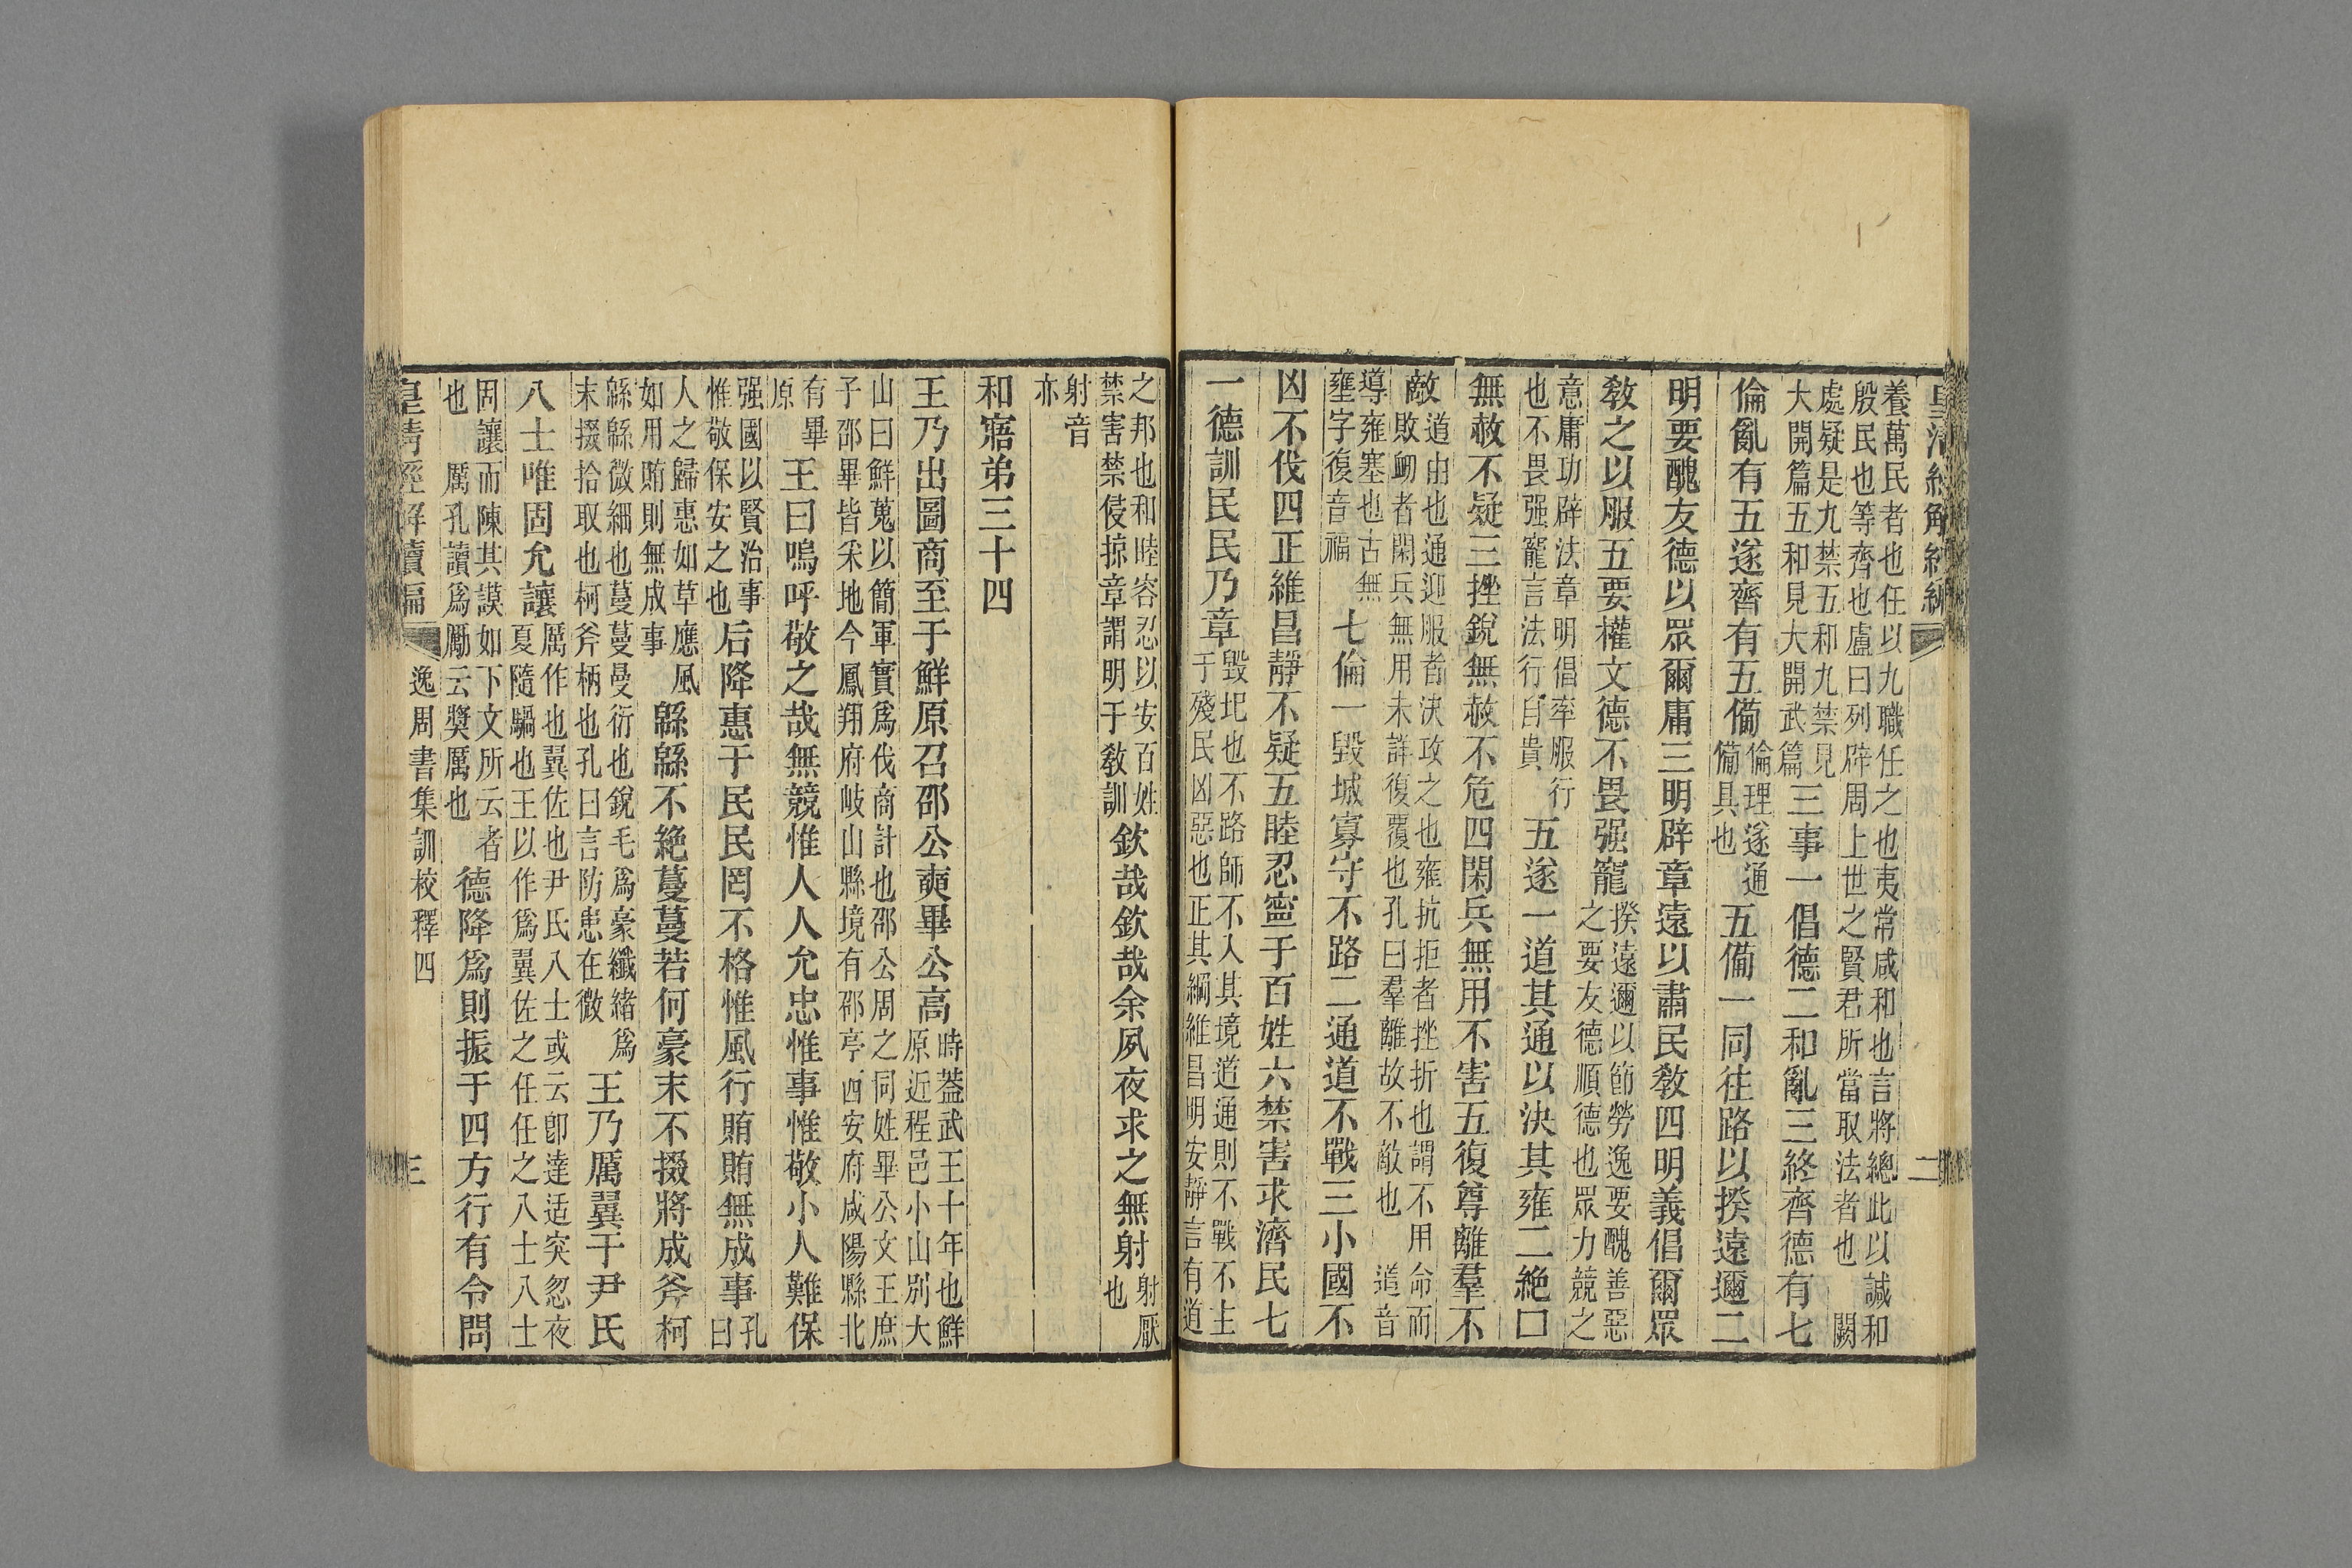 皇清經解續編　二
養萬民者也任以九職任之也夷常咸和也言將總此以誠和
殷民也等齊也盧曰列辟周上世之賢君所當取法者也　闕
處疑是九禁五和九禁見
大開篇五和見大開武篇
三事一倡德二和亂三終齊德有七
倫亂有五遂齊有五備
倫理遂通
備具也
五備一同往路以揆遠邇二
明要醜友德以眾爾庸三明辟章遠以肅民敎四明義倡爾眾
敎之以服五要權文德不畏强寵
揆遠邇以節勞逸要醜善惡
之要友德順德也眾力競之
意庸功辟法章明倡率服行
也不畏强寵言法行自貴
五遂一道其通以決其雍二絶口
無赦不疑三挫銳無赦不危四閑兵無用不害五復尊離羣不
敵
道由也通迎服者決攻之也雍抗拒者挫折也謂不用命而
敗衂者閑兵無用未詳復覆也孔曰羣離故不敵也　道音
導雍塞也古無
壅字復音福
七倫一毀城寡守不路二通道不戰三小國不
凶不伐四正維昌靜不疑五睦忍寍于百姓六禁害求濟民七
一德訓民民乃章
毀圯也不路師不入其境道通則不戰不主
于殘民凶惡也正其綱維昌明安靜言有道
之邦也和睦容忍以安百姓
禁害禁侵掠章謂明于敎訓
欽哉欽哉余夙夜求之無射
射厭
也
射音
亦
和寤弟三十四
王乃出圖商至于鮮原召邵公奭畢公高
時葢武王十年也鮮
原近程邑小山別大
山曰鮮蒐以簡軍實爲伐商計也邵公周之同姓畢公文王庶
子邵畢皆采地今鳳翔府岐山縣境有邵亭西安府咸陽縣北
有畢
原
王曰嗚呼敬之哉無競惟人人允忠惟事惟敬小人難保
强國以賢治事
惟敬保安之也
后降惠于民民罔不格惟風行賄賄無成事
孔
曰
人之歸惠如草應風
如用賄則無成事
緜緜不絶蔓蔓若何豪末不掇將成斧柯
緜緜微細也蔓蔓曼衍也銳毛爲豪纖緒爲
末掇拾取也柯斧柄也孔曰言防患在微
王乃厲翼于尹氏
八士唯固允讓
厲作也翼佐也尹氏八士或云卽達适突忽夜
夏隨騧也王以作爲翼佐之任任之八士八士
固讓而陳其謨如下文所云者
也　厲孔讀爲勵云奬厲也
德降爲則振于四方行有令問
皇清經解續編　逸周書集訓校釋四　三